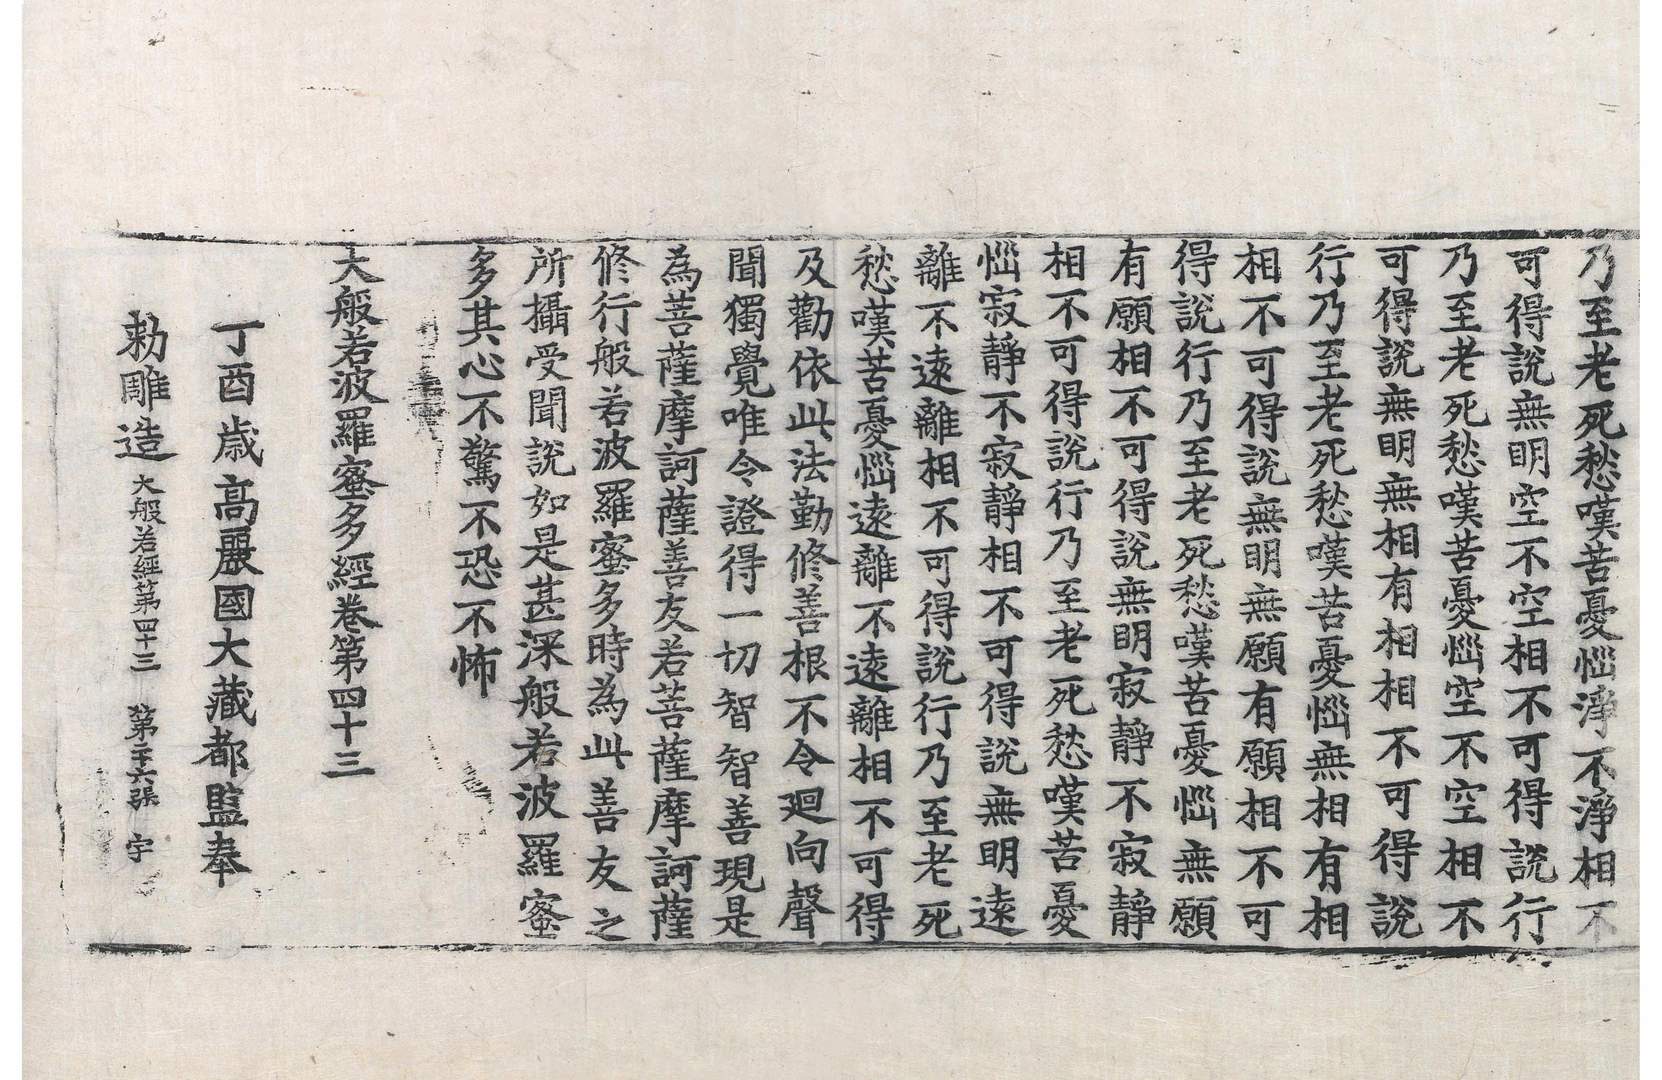 乃至老死愁嘆苦憂惱淨不淨相不
可得說無明空不空相不可得說行
乃至老死愁嘆苦憂惱空不空相不
可得說無明無相有相相不可得說
行乃至老死愁嘆苦憂惱無相有相
相不可得說無明無願有願相不可
得說行乃至老死愁嘆苦憂惱無願
有願相不可得說無明寂靜不寂靜
相不可得說行乃至老死愁嘆苦憂
惱寂靜不寂靜相不可得說無明遠
離不遠離相不可得說行乃至老死
愁嘆苦憂惱遠離不遠離相不可得
及勸依此法勤修善根不令迴向聲
聞獨覺唯令證得一切智智善現是
為菩薩摩訶薩善友若菩薩摩訶薩
修行般若波羅蜜多時為此善友之
所攝受聞說如是甚深般若波羅蜜
多其心不驚不恐不怖
大般若波羅蜜多經卷第四十三
丁酉歲高麗國大藏都監奉
勅雕造 大般若經第四十三 第二十六張 宇